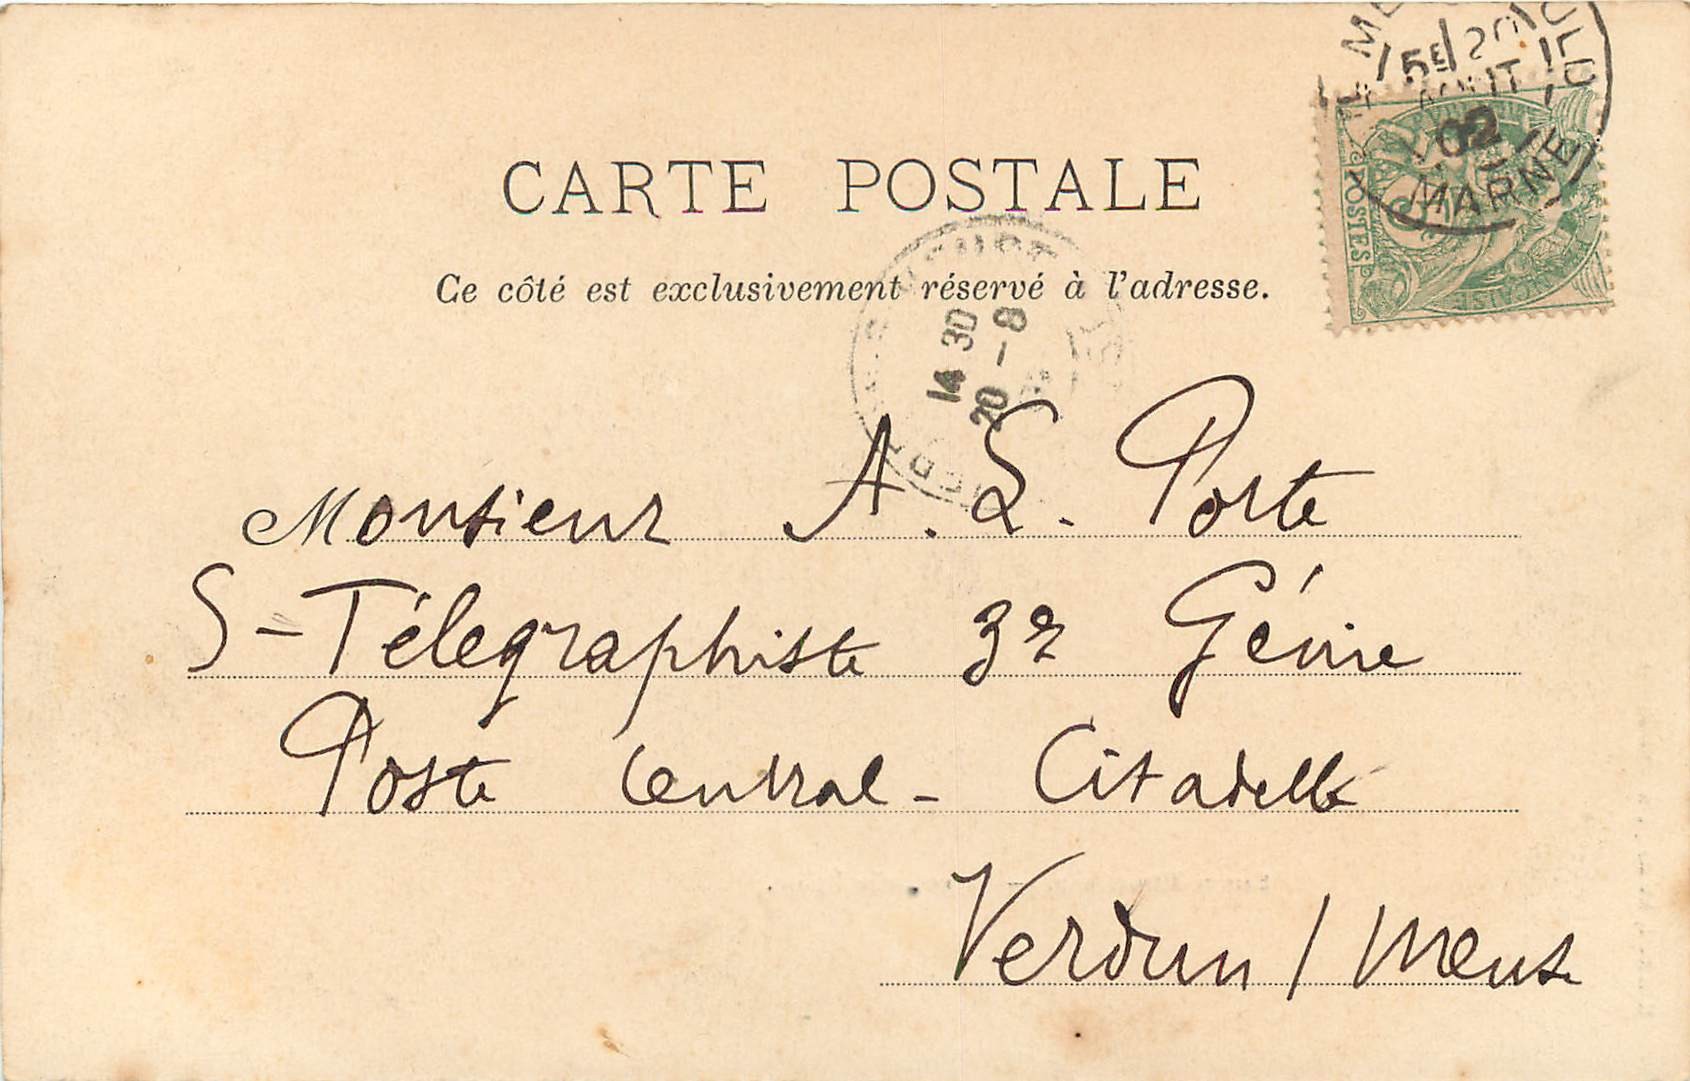 CARTE POSTALE
Ce côté est exclusivement réservé à l'adresse.
5E 20
AOUT
02
MARNE
POSTES
14 30
20 - 8
Monsieur A. L. Porte
S-Télégraphiste 3e Génie
Poste Central - Citadelle
Verdun / Meuse